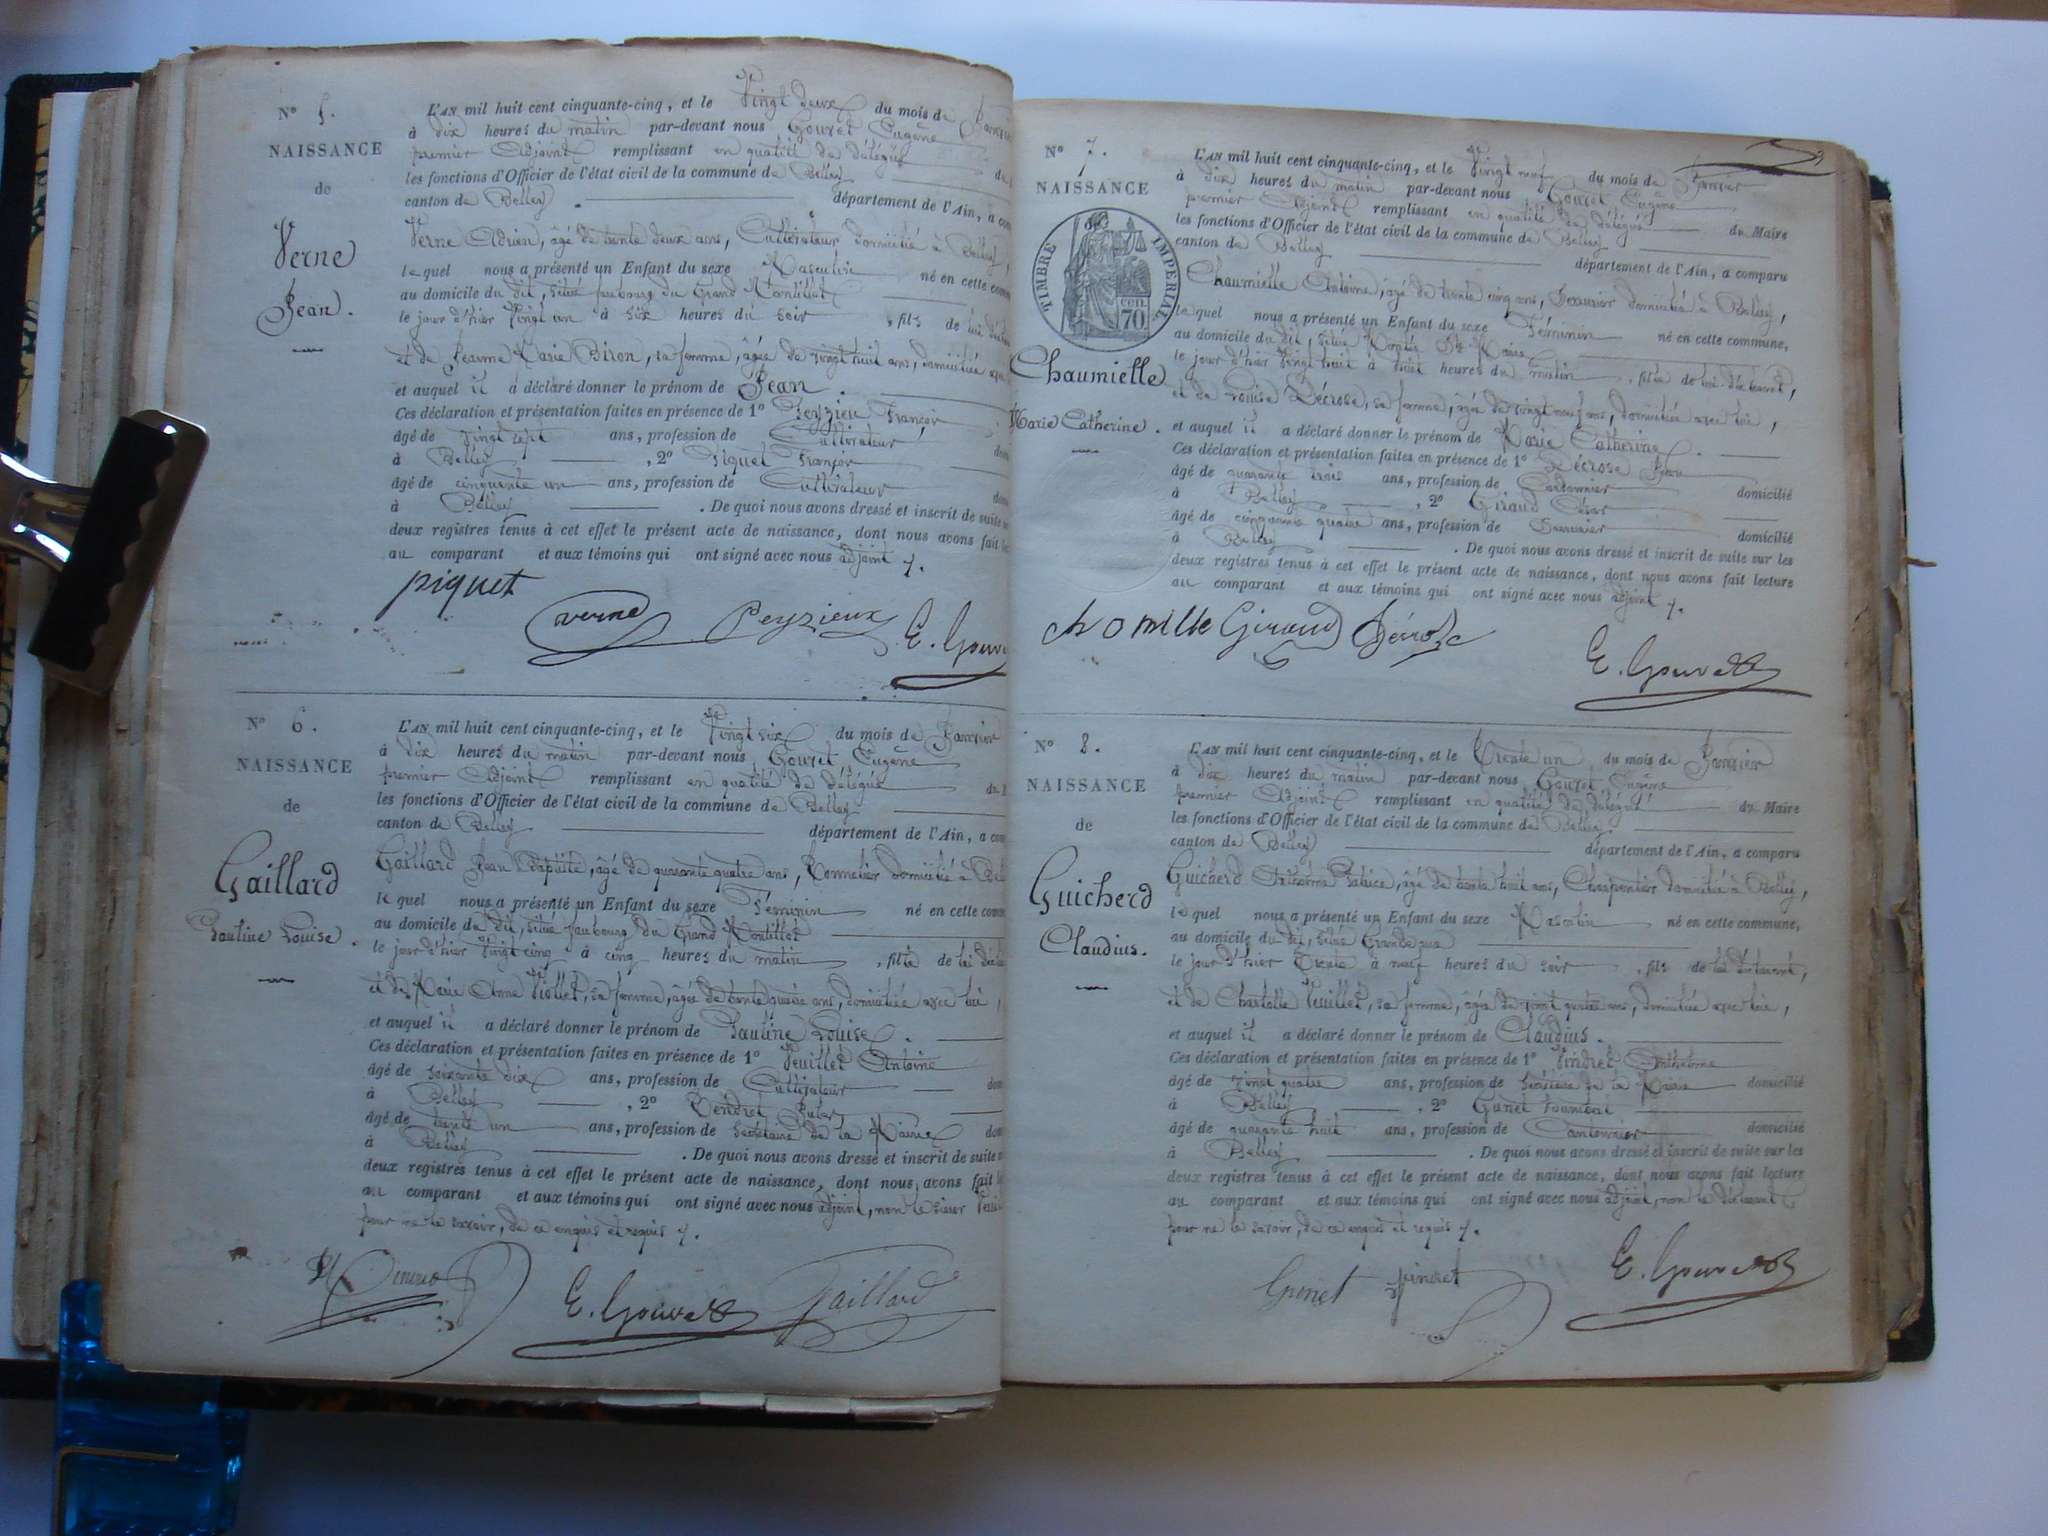 N° 5.
NAISSANCE
de
Verne
Jean.
L'AN mil huit cent cinquante-cinq, et le Vingt deux du mois de
à dix heures du matin par-devant nous Gouvet Eugène
premier Adjoint remplissant en qualité de délégué
les fonctions d'Officier de l'état civil de la commune de Belley
canton de Belley département de l'Ain, a
Verne Adrien, âgé de trente deux ans, Cultivateur domicilié à Belley,
lequel nous a présenté un Enfant du sexe Masculin né en cette
au domicile du dit, situé faubourg du Grand Montillet
le jour d'hier Vingt un à six heures du soir, fils de lui
et de Jeanne Marie Biron, sa femme, âgée de vingt huit ans, domiciliée
et auquel il a déclaré donner le prénom de Jean.
Ces déclaration et présentation faites en présence de 1° Peyzieu François
âgé de vingt sept ans, profession de Cultivateur
à Belley, 2° Piquet François
âgé de cinquante un ans, profession de Cultivateur
à Belley. De quoi nous avons dressé et inscrit de suite
deux registres tenus à cet effet le présent acte de naissance, dont nous avons fait
au comparant et aux témoins qui ont signé avec nous adjoint ./.
piquet
verne Peyzieux E. Gouv
N° 6.
NAISSANCE
de
Gaillard
Pauline Louise.
L'AN mil huit cent cinquante-cinq, et le Vingt six du mois de Janvier
à dix heures du matin par-devant nous Gouvet Eugène
premier Adjoint remplissant en qualité de délégué du
les fonctions d'Officier de l'état civil de la commune de Belley
canton de Belley département de l'Ain, a
Gaillard Jean Baptiste, âgé de quarante quatre ans, domicilié à
lequel nous a présenté un Enfant du sexe Féminin né en cette
au domicile du dit, situé faubourg du Grand Montillet
le jour d'hier Vingt cinq à cinq heures du matin, fille de lui
et de Marie Anne Viollet, sa femme, âgée de trente quatre ans, domiciliée avec lui,
et auquel il a déclaré donner le prénom de Pauline Louise.
Ces déclaration et présentation faites en présence de 1° Veuillet Antoine
âgé de soixante dix ans, profession de Cultivateur
à Belley, 2°
âgé de trente un ans, profession de Secrétaire de la Mairie
à Belley. De quoi nous avons dressé et inscrit de suite
deux registres tenus à cet effet le présent acte de naissance, dont nous avons fait
au comparant et aux témoins qui ont signé avec nous adjoint, non le sieur
pour ne le savoir, de ce enquis et requis ./.
E. Gouvet Gaillard
N° 7.
NAISSANCE
de
TIMBRE IMPERIAL
70 cen.
Chaumielle
Marie Catherine.
L'AN mil huit cent cinquante-cinq, et le Vingt neuf du mois de Janvier
à dix heures du matin par-devant nous Gouvet Eugène
premier Adjoint remplissant en qualité de délégué du Maire
les fonctions d'Officier de l'état civil de la commune de Belley
canton de Belley département de l'Ain, a comparu
Chaumielle Antoine, âgé de trente cinq ans, domicilié à Belley,
lequel nous a présenté un Enfant du sexe Féminin né en cette commune,
au domicile du dit, situé
le jour d'hier Vingt huit à huit heures du matin, fille de lui déclarant,
et de Louise Décrose, sa femme, âgée de vingt neuf ans, domiciliée avec lui,
et auquel il a déclaré donner le prénom de Marie Catherine.
Ces déclaration et présentation faites en présence de 1° Décrose Jean
âgé de quarante trois ans, profession de Cordonnier domicilié
à Belley, 2° Giraud César
âgé de cinquante quatre ans, profession de domicilié
à Belley. De quoi nous avons dressé et inscrit de suite sur les
deux registres tenus à cet effet le présent acte de naissance, dont nous avons fait lecture
au comparant et aux témoins qui ont signé avec nous adjoint ./.
chomille Giraud
E. Gouvet
N° 8.
NAISSANCE
de
Guicherd
Claudius.
L'AN mil huit cent cinquante-cinq, et le Trente un du mois de Janvier
à dix heures du matin par-devant nous Gouvet Eugène
premier Adjoint remplissant en qualité de délégué du Maire
les fonctions d'Officier de l'état civil de la commune de Belley
canton de Belley département de l'Ain, a comparu
Guicherd Anthelme âgé de trente huit ans, Charpentier domicilié à Belley,
lequel nous a présenté un Enfant du sexe Masculin né en cette commune,
au domicile du dit, situé Grande rue
le jour d'hier Trente à neuf heures du soir, fils de lui déclarant,
et de Charlotte Veuillet, sa femme, âgée de vingt quatre ans, domiciliée avec lui,
et auquel il a déclaré donner le prénom de Claudius.
Ces déclaration et présentation faites en présence de 1° Pindret Anthelme
âgé de vingt quatre ans, profession de Secrétaire de la Mairie domicilié
à Belley, 2° Grinet
âgé de quarante huit ans, profession de Cantonnier domicilié
à Belley. De quoi nous avons dressé et inscrit de suite sur les
deux registres tenus à cet effet le présent acte de naissance, dont nous avons fait lecture
au comparant et aux témoins qui ont signé avec nous adjoint, non le déclarant
pour ne le savoir, de ce enquis et requis ./.
Grinet pindret E. Gouvet